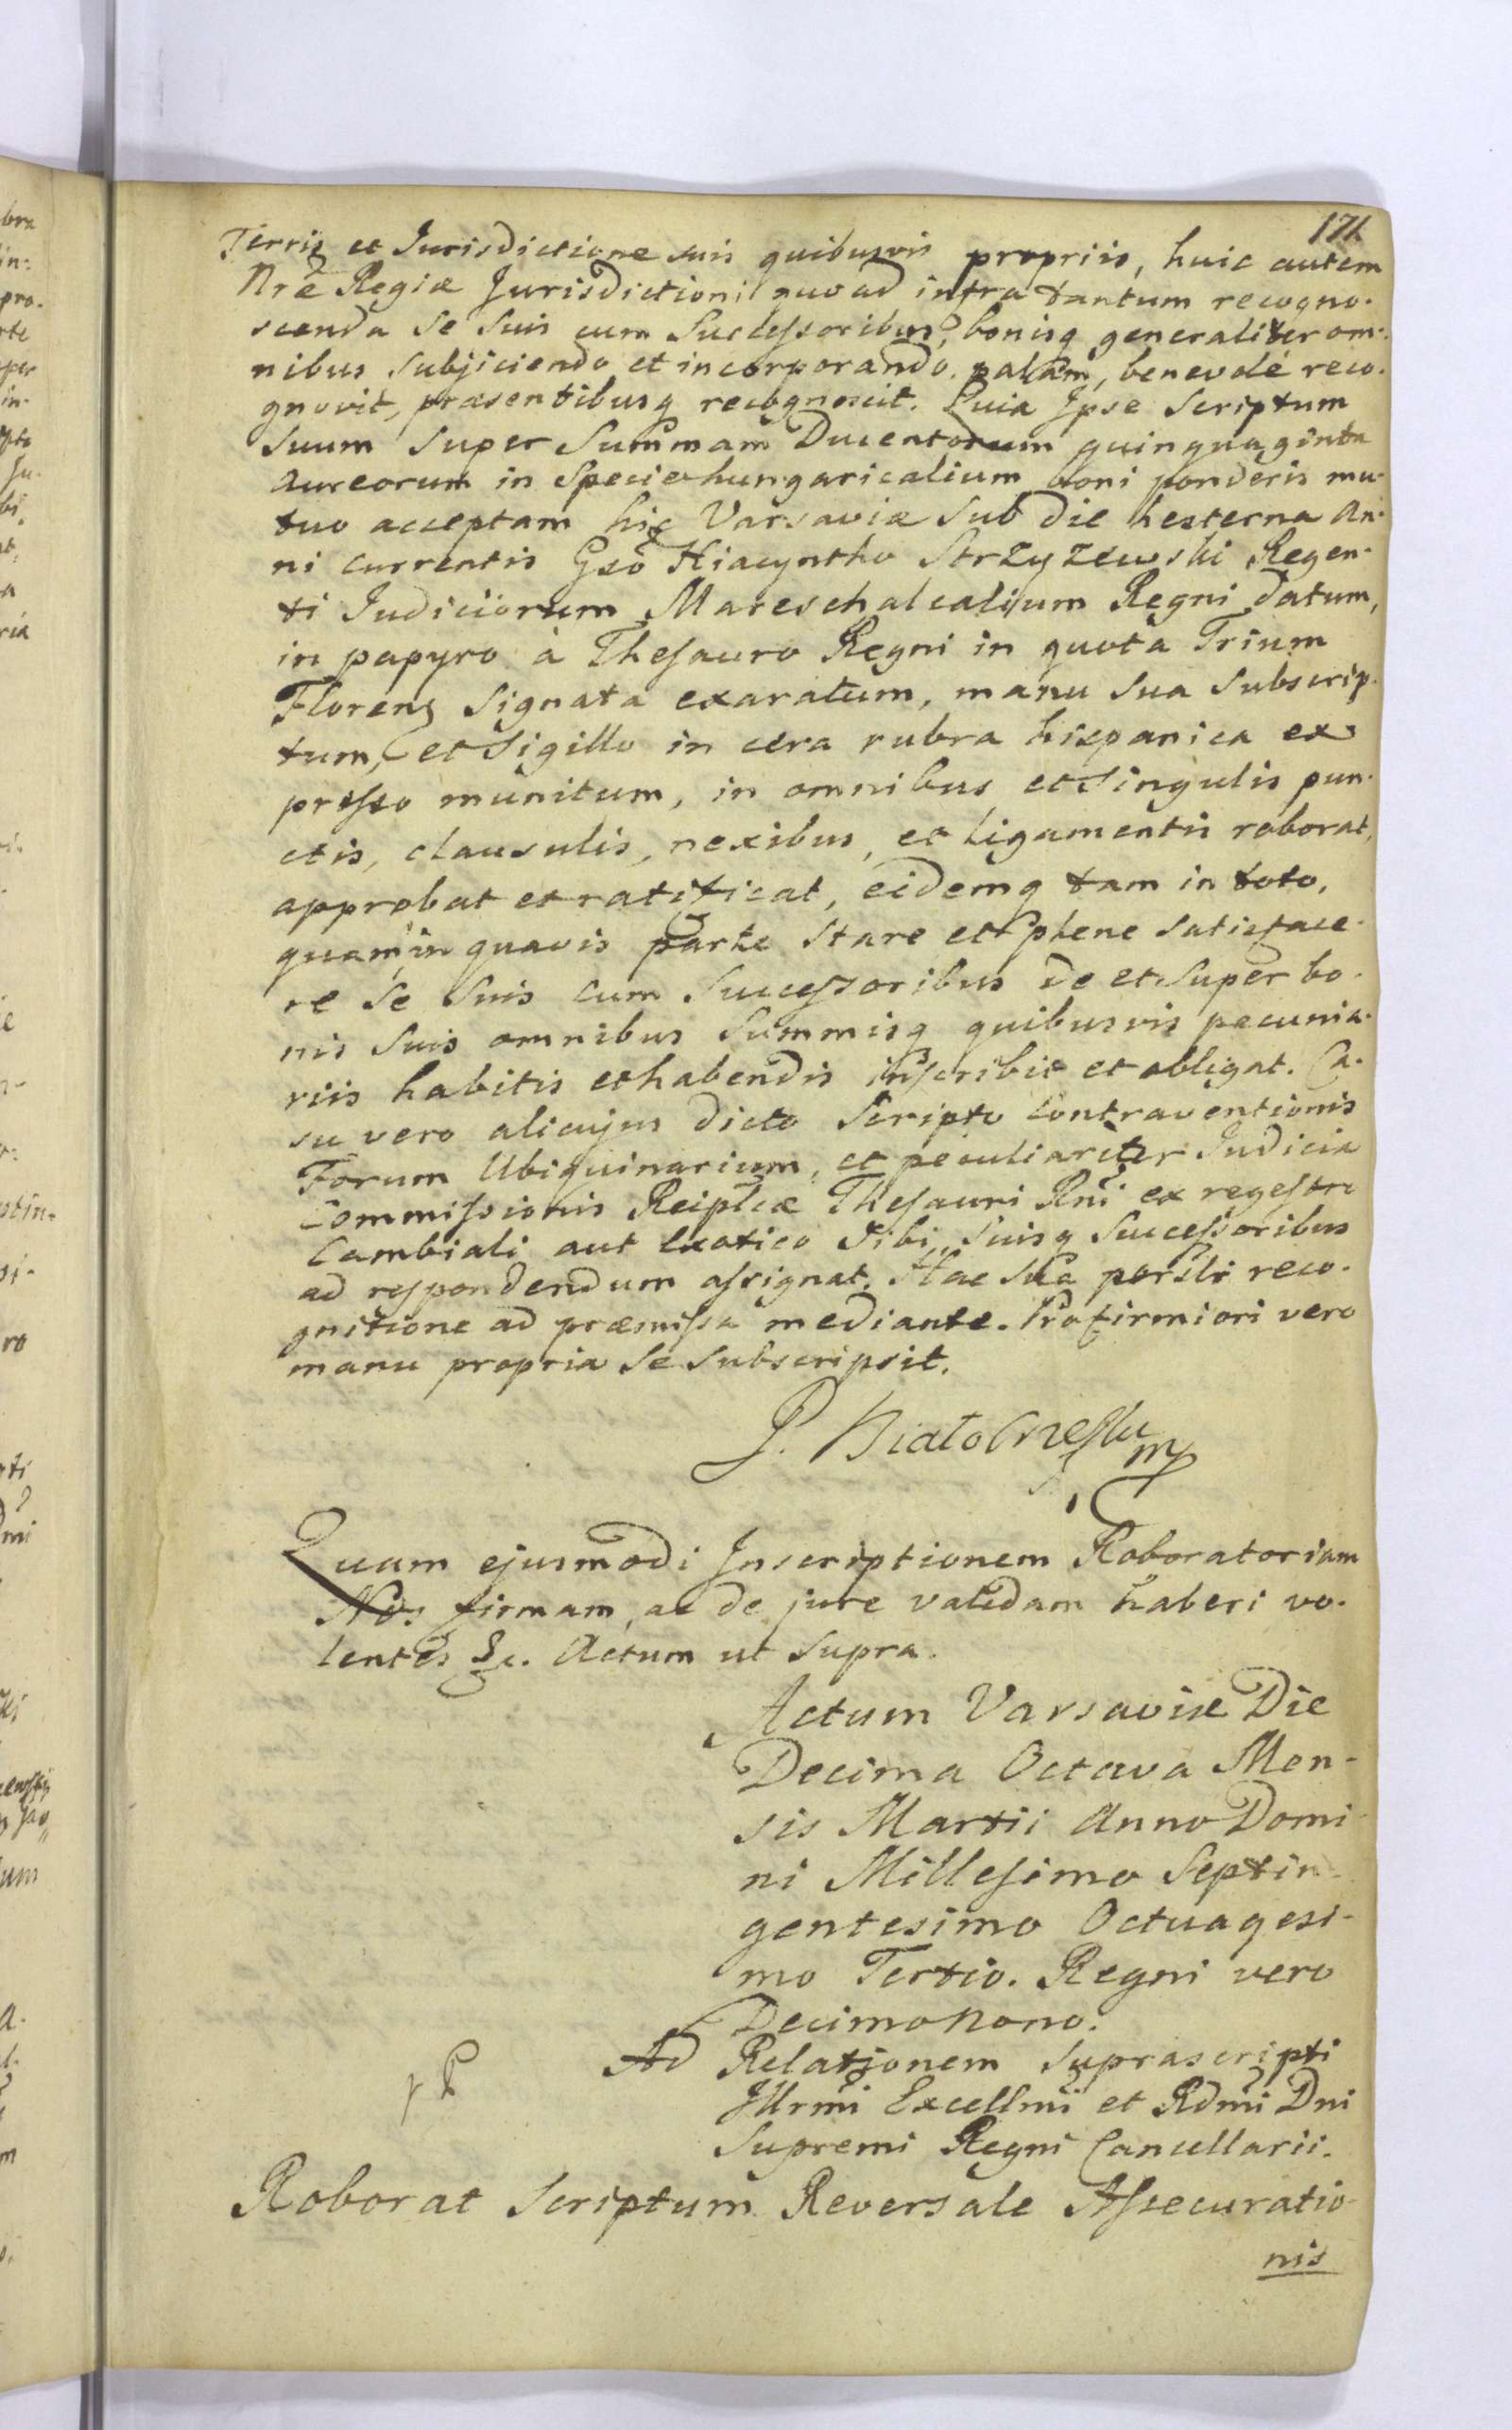 171
Terris et Jurisdictione suis quibusvis propriis, huic autem
Nrae Regiæ Jurisdictioni quoad infra tantum recogno-
scenda se suis cum Successoribus, bonisq generaliter om-
nibus subjiciendo et incorporando. palam, benevolé reco-
gnovit, præsentibusq recognoscit. Quia Ipse Scriptum
suum super Summam Ducentorum quinquaginta
Aureorum in Specie hungaricalium boni ponderis mu-
tuo acceptam hic Varsaviæ sub die hesterna An-
ni currentis Gso Hiacyntho Strzyzewski Regen-
ti Judiciorum Mareschalcalium Regni datum,
in papyro à Thesauro Regni in quota Trium
Floren signata exaratum, manu sua subscrip-
tum, et Sigillo in cera rubra hispanica ex
presso munitum, in omnibus et singulis pun-
ctis, clausulis, nexibus, et ligamentis roborat,
approbat et ratificat, eidemq tam in toto,
quam in quavis parte stare et plene satisface-
re se suis cum Successoribus de et super bo-
nis suis omnibus Summisq quibusvis pecunia-
riis habitis et habendis inscribit et obligat. Ca-
su vero alicujus dicto Scripto contraventionis
Forum Ubiquinarium, et peculiariter Judicia
Commissionis Reiplcæ Thesauri Rni ex regestro
Cambiali aut Exotico sibi, suisq Successoribus
ad respondendum assignat. Hac sua persli reco-
gnitione ad præmissa mediante. Pro firmiori vero
manu propria se subscripsit.
P. mp
Quam ejusmodi Inscriptionem Roboratoriam
Nos firmam, ac de jure validam haberi vo-
lentes &c. Actum ut supra.
Actum Varsaviæ Die
Decima Octava Men-
sis Martii Anno Domi-
ni Millesimo Septin-
gentesimo Octuagesi-
mo Tertio. Regni vero
Decimo Nono.
Ad Relationem suprascripti
Illrmi Excellmi et Rdmi Dni
Supremi Regni Cancellarii.
Roborat Scriptum Reversale Assecuratio-
nis